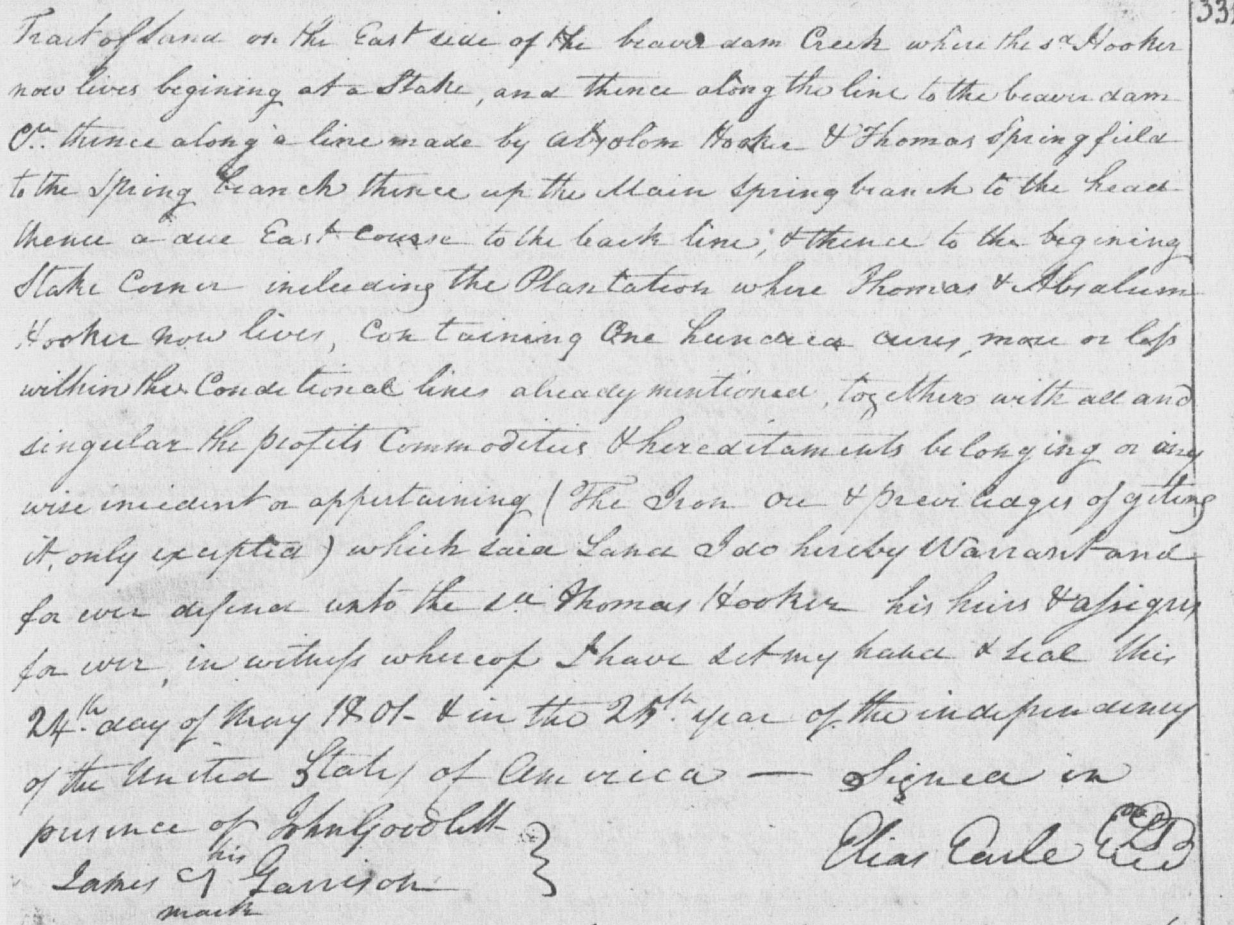 33
Tract of Land on the East side of the beaver dam Creek where the sd Hooker
now lives begining at a Stake, and thence along the line to the beaver dam
Ck. thence along a line made by Absolom Hooker & Thomas Springfield
to the Spring branch thence up the Main spring branch to the head
thence a due East Course to the back line, & thence to the begining
Stake Corner including the Plantation where Thomas & Absalum
Hooker now lives, Containing One hundred acres, more or less
within the Conditional lines already mentioned, together with all and
singular the profits Commodities & hereditaments belonging or any
wise incedent or appertaining (The Iron Ore & previledges of giting
it, only excepted) which said Land I do hereby Warrant and
for ever defend unto the sd Thomas Hooker his heirs & assigns
for ever, in witness whereof I have set my hand & seal this
24th day of May 1801- & in the 25th year of the independency
of the United States of America — Signed in
presence of John Goodlett
Elias Earle
his
James Garrison
mark